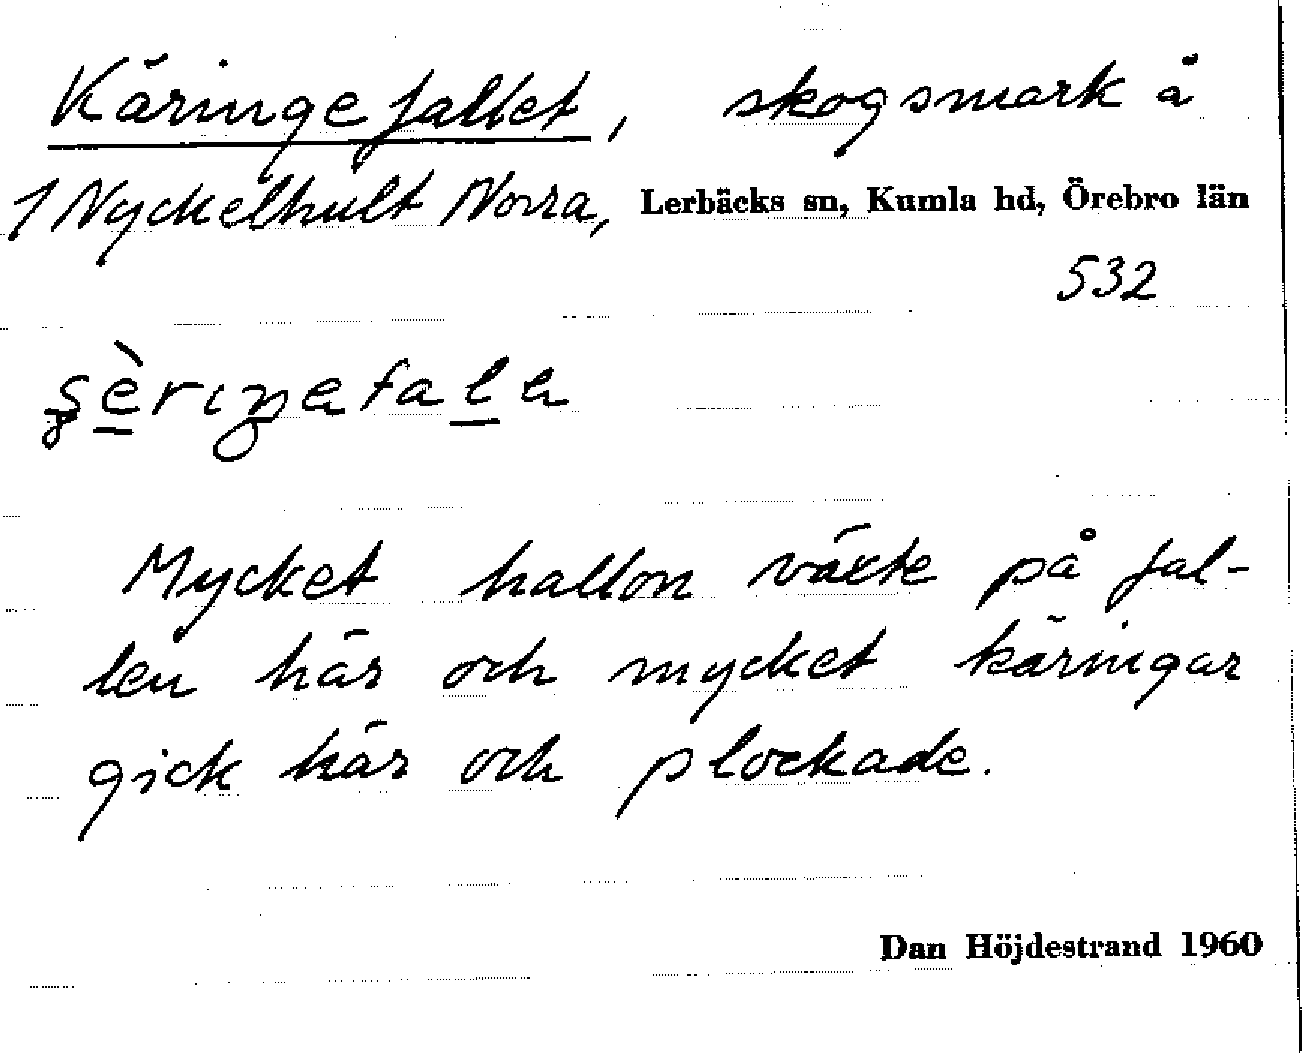 Käringefallet, skogsmark å
1 Nyckelhult Norra, Lerbäcks sn, Kumla hd, Örebro län
532
Mycket hallon växte på fal-
len här och mycket käringar
gick här och plockade.
Dan Höjdestrand 1960